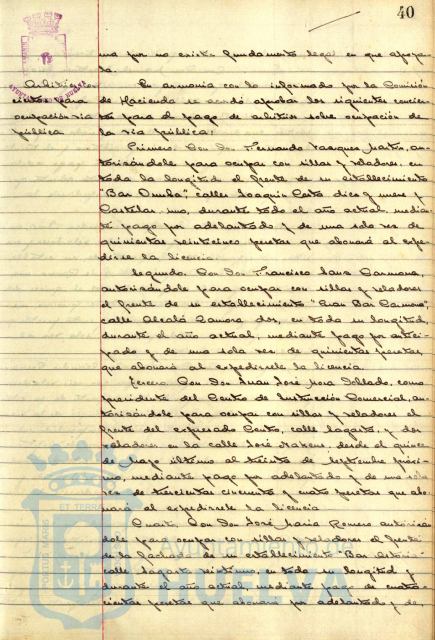 40
ma por no existir fundamento legal en que apoya-
la.
Arbitrios con-
ciertos para
ocupación vía
pública
En armonía con lo informado por la Comisión
de Hacienda se acordó aprobar los siguientes concier-
tos para el pago de arbitrios sobre ocupación de
la vía pública:
Primero. Con Don Fernando Vazquez Martín, au-
torizándole para ocupar con sillas y veladores, en
toda la longitud el frente de su establecimiento
"Bar Onuba", calles Joaquín Costa diez y nueve y
Castelar uno, durante todo el año actual, median-
te pago por adelantado y de una sola vez de
quinientas veinticinco pesetas que abonará al expe-
dirse la licencia.
Segundo. Con Don Francisco Sanz Carmona,
autorizándole para ocupar con sillas y veladores
el frente de su establecimiento "Gran Bar Carmona",
calle Alcalá Zamora dos, en toda su longitud,
durante el año actual, mediante pago por antici-
pado y de una sola vez, de quinientas pesetas,
que abonará al expedírsele la licencia.
Tercero. Con Don Juan José Mora Doblado, como
presidente del Centro de Instrucción Comercial, au-
torizándole para ocupar con sillas y veladores el
frente del expresado Centro, calle Sagasta, y dos
veladores en la calle José Nakens, desde el quince
de mayo último al treinta de Septiembre próxi-
mo, mediante pago por adelantado y de una sola
vez de trescientas cincuenta y cuatro pesetas que abo-
nará al expedírsele la licencia
Cuarto. Con Don José María Romero autorizán-
dole para ocupar con sillas y veladores el frente
de la fachada de su establecimiento "Bar
calle Sagasta veintiuno, en toda su longitud y
durante el año actual, mediante pago de cuatro-
cientas pesetas que abonará por adelantado y de,
PORTUS MARIS
ET TERRAE
HUELVA